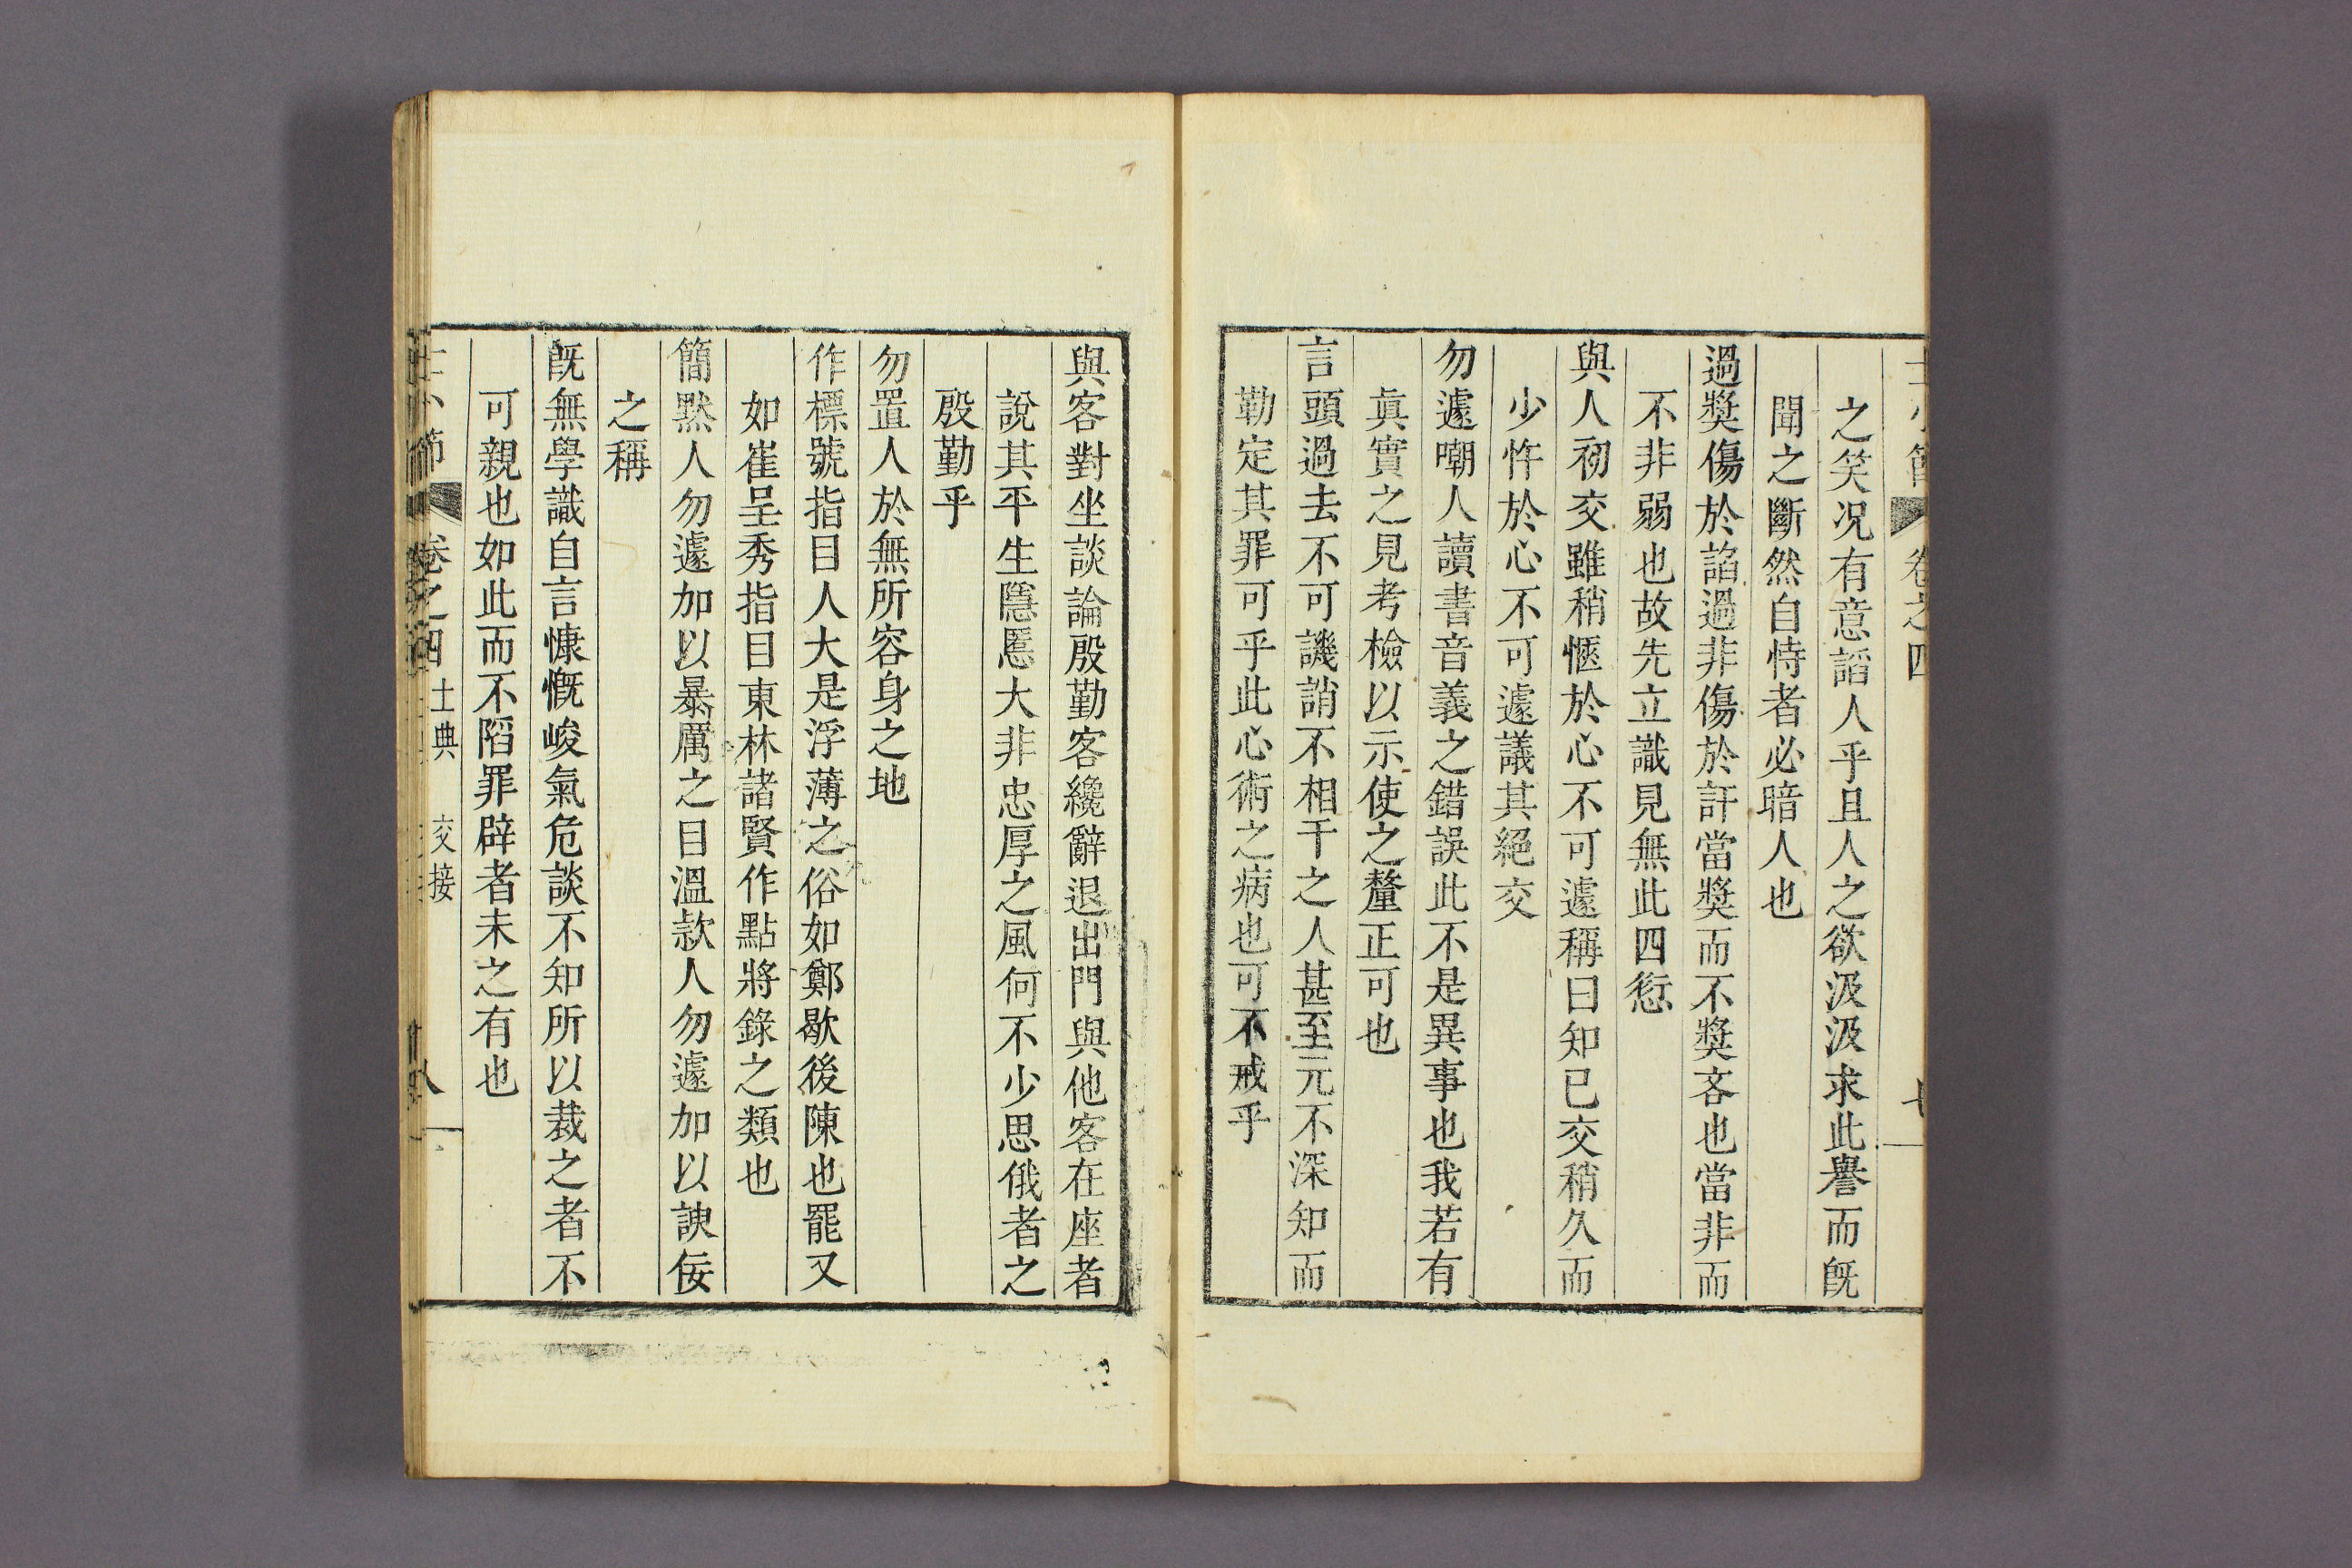 士小節 卷之四 七
之笑况有意謟人乎且人之欲汲汲求此譽而旣
聞之斷然自恃者必暗人也
過奬傷於諂過非傷於訐當奬而不奬吝也當非而
不非弱也故先立識見無此四愆
與人初交雖稍愜於心不可遽稱曰知已交稍久而
少忤於心不可遽議其絕交
勿遽嘲人讀書音義之錯誤此不是異事也我若有
眞實之見考檢以示使之釐正可也
言頭過去不可譏誚不相干之人甚至元不深知而
勒定其罪可乎此心術之病也可不戒乎
與客對坐談論殷勤客纔辭退出門與他客在座者
說其平生隱慝大非忠厚之風何不少思俄者之
殷勤乎
勿置人於無所容身之地
作標號指目人大是浮薄之俗如鄭歇後陳也罷又
如崔呈秀指目東林諸賢作點將錄之類也
簡黙人勿遽加以暴厲之目溫款人勿遽加以諛佞
之稱
旣無學識自言慷慨峻氣危談不知所以裁之者不
可親也如此而不陷罪辟者未之有也
士小節 卷之四 士典 交接 八